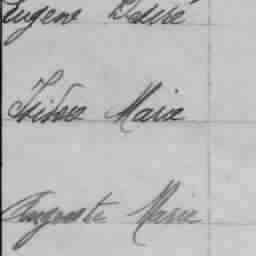 Eugene Désiré
Isidore Marie
Auguste Marie